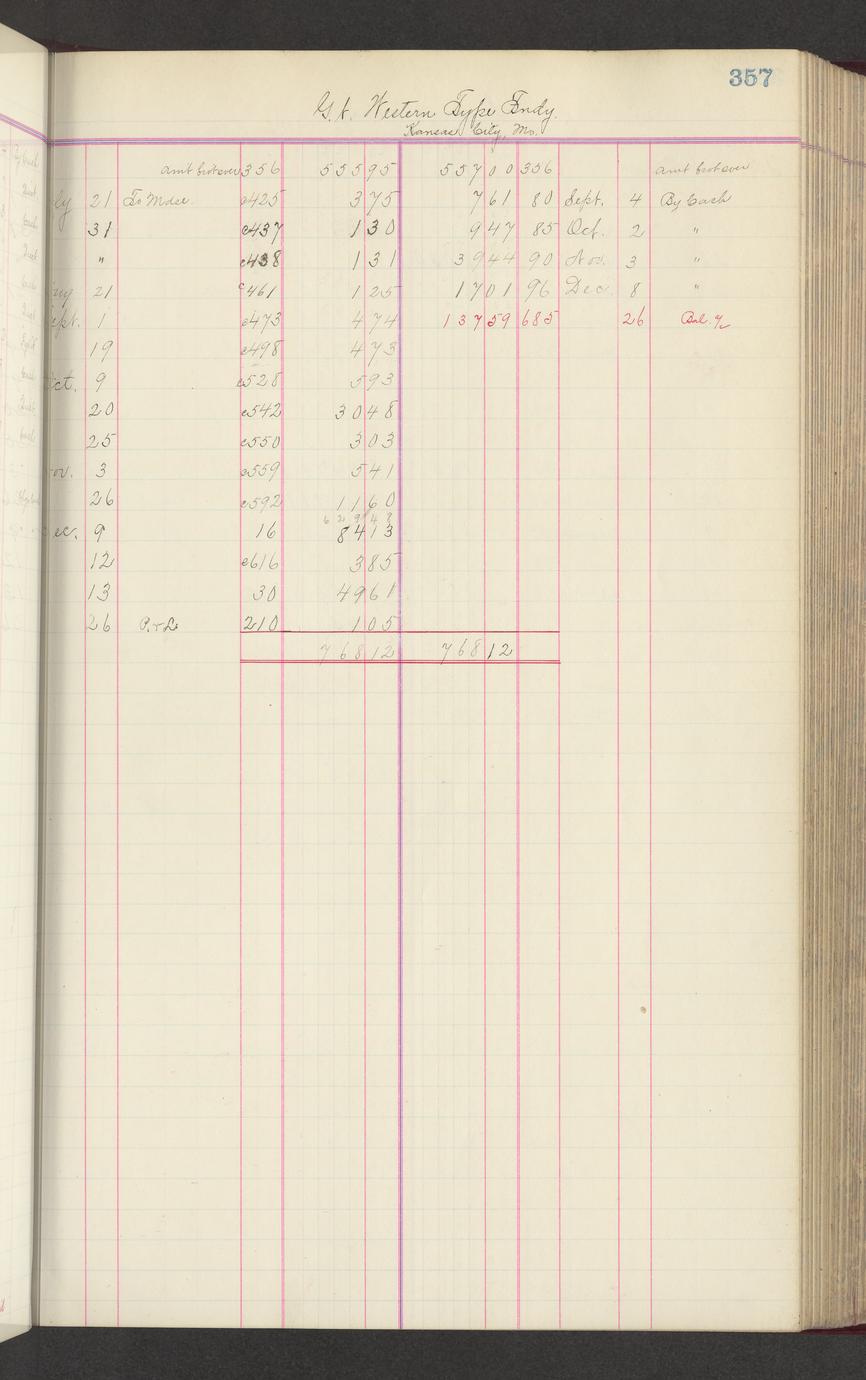 357
Gt. Western Type Fndy.
Kansas City, Mo.
amt brot over 356 555 95 557 00 356 amt brot over
ly 21 To Mdse. c425 3 75 7 61 80 Sept. 4 By Cash
31 c437 1 30 9 47 85 Oct. 2 "
" c438 1 31 39 44 90 Nov. 3 "
ug 21 c461 1 25 17 01 96 Dec. 8 "
ept. 1 c473 4 74 137 59 685 26 Bal. %
19 c498 4 73
ct. 9 c528 5 93
20 c542 30 48
25 c550 3 03
ov. 3 c559 5 41
26 c592 11 60
629 48
ec. 9 16 84 13
12 c616 3 85
13 30 49 61
26 P. & L. 210 1 05
768 12 768 12